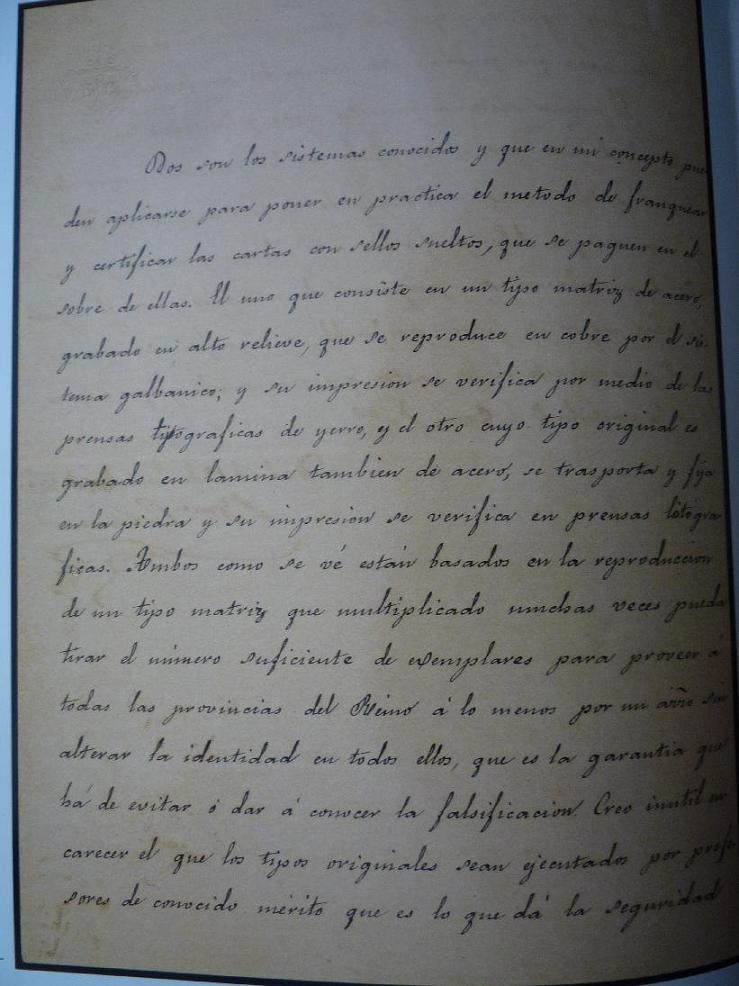 Dos son los sistemas conocidos y que en mi concepto pue-
den aplicarse para poner en practica el metodo de franquear
y certificar las cartas con sellos sueltos, que se peguen en el
sobre de ellas. El uno que consiste en un tipo matriz de acero,
grabado en alto relieve, que se reproduce en cobre por el sis-
tema galbanico; y su impresion se verifica por medio de las
prensas tipograficas de yerro, y el otro cuyo tipo original es
grabado en lamina tambien de acero, se trasporta y fija
en la piedra y su impresion se verifica en prensas litogra
ficas. Ambos como se vé están basados en la reproduccion
de un tipo matriz que multiplicado muchas veces pueda
tirar el número suficiente de exemplares para proveer á
todas las provincias del Reino á lo menos por un año sin
alterar la identidad en todos ellos, que es la garantia que
há de evitar ó dar á conocer la falsificacion. Creo inutil en
carecer el que los tipos originales sean ejecutados por profe-
sores de conocido mérito que es lo que dá la seguridad